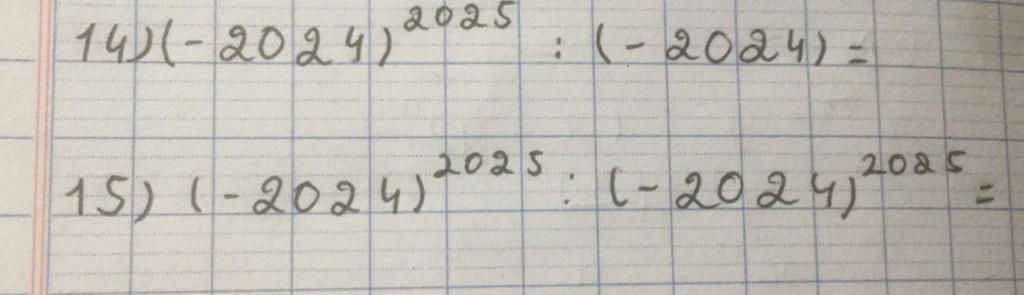 14) (-2024)^2025 : (-2024) =
15) (-2024)^2025 : (-2024)^2025 =